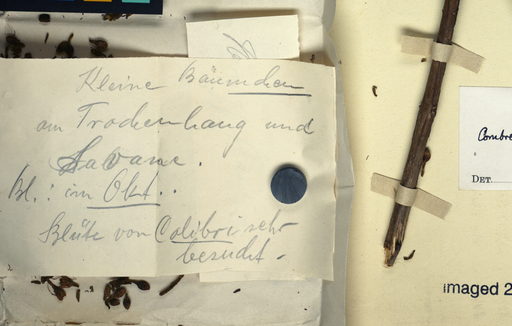 Kleine Bäumchen
am Trockenhang und
Savane.
Bl.: im Okt..
Blüte von Colibri sehr
besucht.
Combre
DET.
maged 2